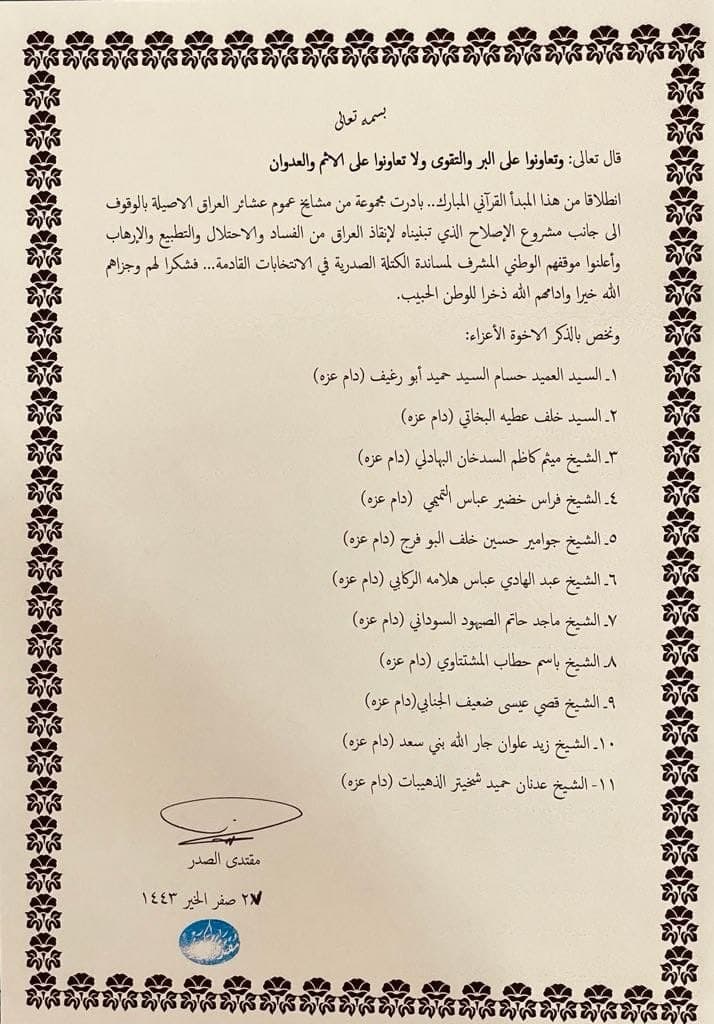 بسمه تعالى
قال تعالى: وتعاونوا على البر والتقوى ولا تعاونوا على الاثم والعدوان
انطلاقا من هذا المبدأ القرآني المبارك.. بادرت مجموعة من مشايخ عموم عشائر العراق الاصيلة بالوقوف
الى جانب مشروع الإصلاح الذي تبنيناه لإنقاذ العراق من الفساد والاحتلال والتطبيع والإرهاب
وأعلنوا موقفهم الوطني المشرف لمساندة الكتلة الصدرية في الانتخابات القادمة... فشكرا لهم وجزاهم
الله خيرا وادامهم الله ذخرا للوطن الحبيب.
ونخص بالذكر الاخوة الأعزاء:
١ـ السيد العميد حسام السيد حميد أبو رغيف (دام عزه)
٢ـ السيد خلف عطيه البخاتي (دام عزه)
٣ـ الشيخ ميثم كاظم السدخان البهادلي (دام عزه)
٤ـ الشيخ فراس خضير عباس التميمي (دام عزه)
٥ـ الشيخ جوامير حسين خلف البو فرج (دام عزه)
٦ـ الشيخ عبد الهادي عباس هلامه الركابي (دام عزه)
٧ـ الشيخ ماجد حاتم الصيهود السوداني (دام عزه)
٨ـ الشيخ باسم حطاب المشتتاوي (دام عزه)
٩ـ الشيخ قصي عيسى ضعيف الجنابي(دام عزه)
١٠ـ الشيخ زيد علوان جار الله بني سعد (دام عزه)
١١- الشيخ عدنان حميد شخيتر الذهيبات (دام عزه)
مقتدى الصدر
٢٧ صفر الخير ١٤٤٣